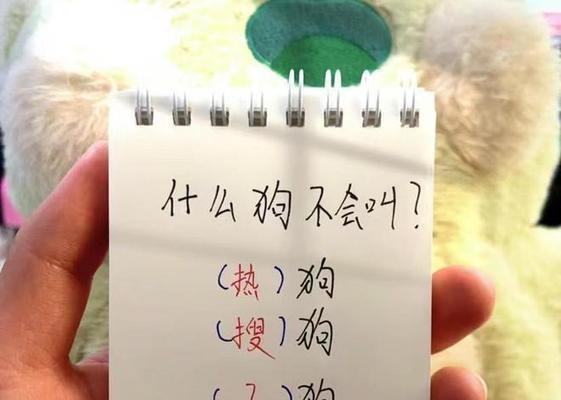 什么狗不会叫？
(热)狗
(搜)狗